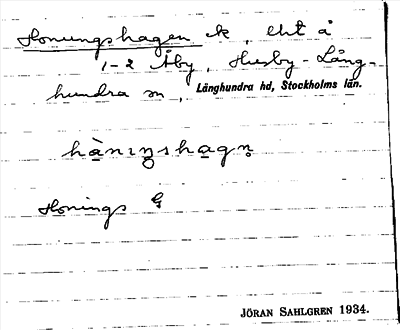 Honungshagen, k, ekt å
1-2 Åby, Husby-Lång-
hundra sn, Långhundra hd, Stockholms län.
hànıŋshagn̥
Honings G
JÖRAN SAHLGREN 1934.